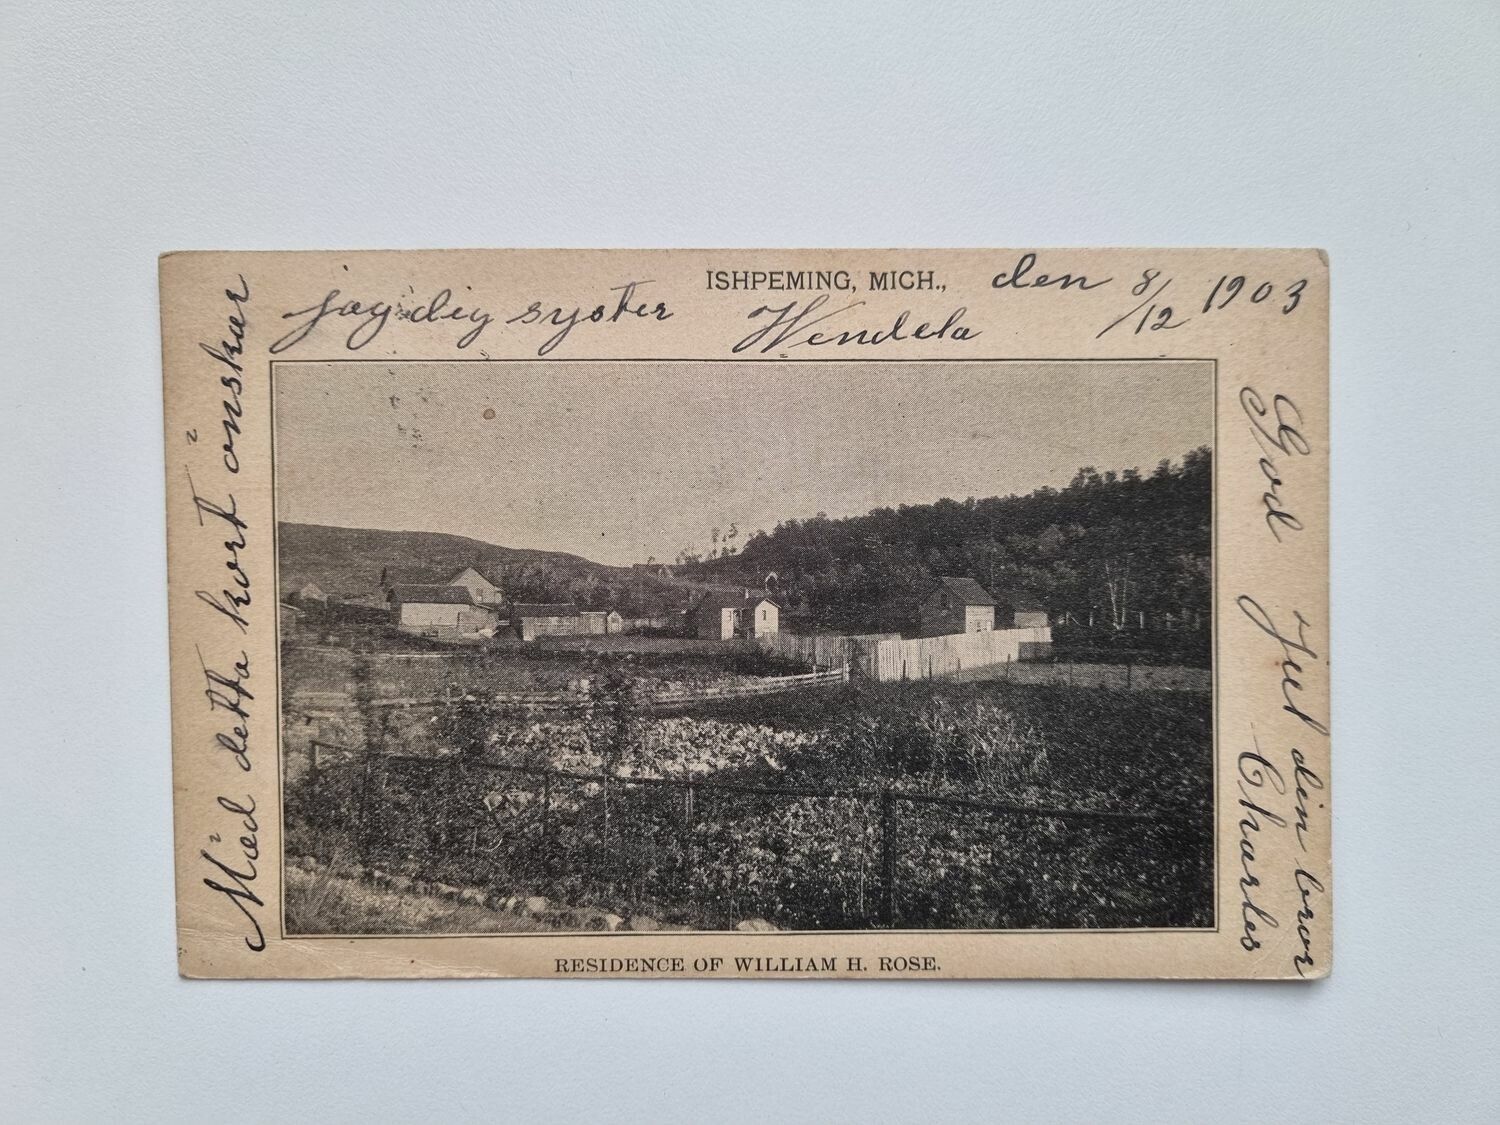 ISHPEMING, MICH., den 8/12 1903
Med detta kort önskar
jag dig syster Wendela
God Jul din bror
Charles
RESIDENCE OF WILLIAM H. ROSE.